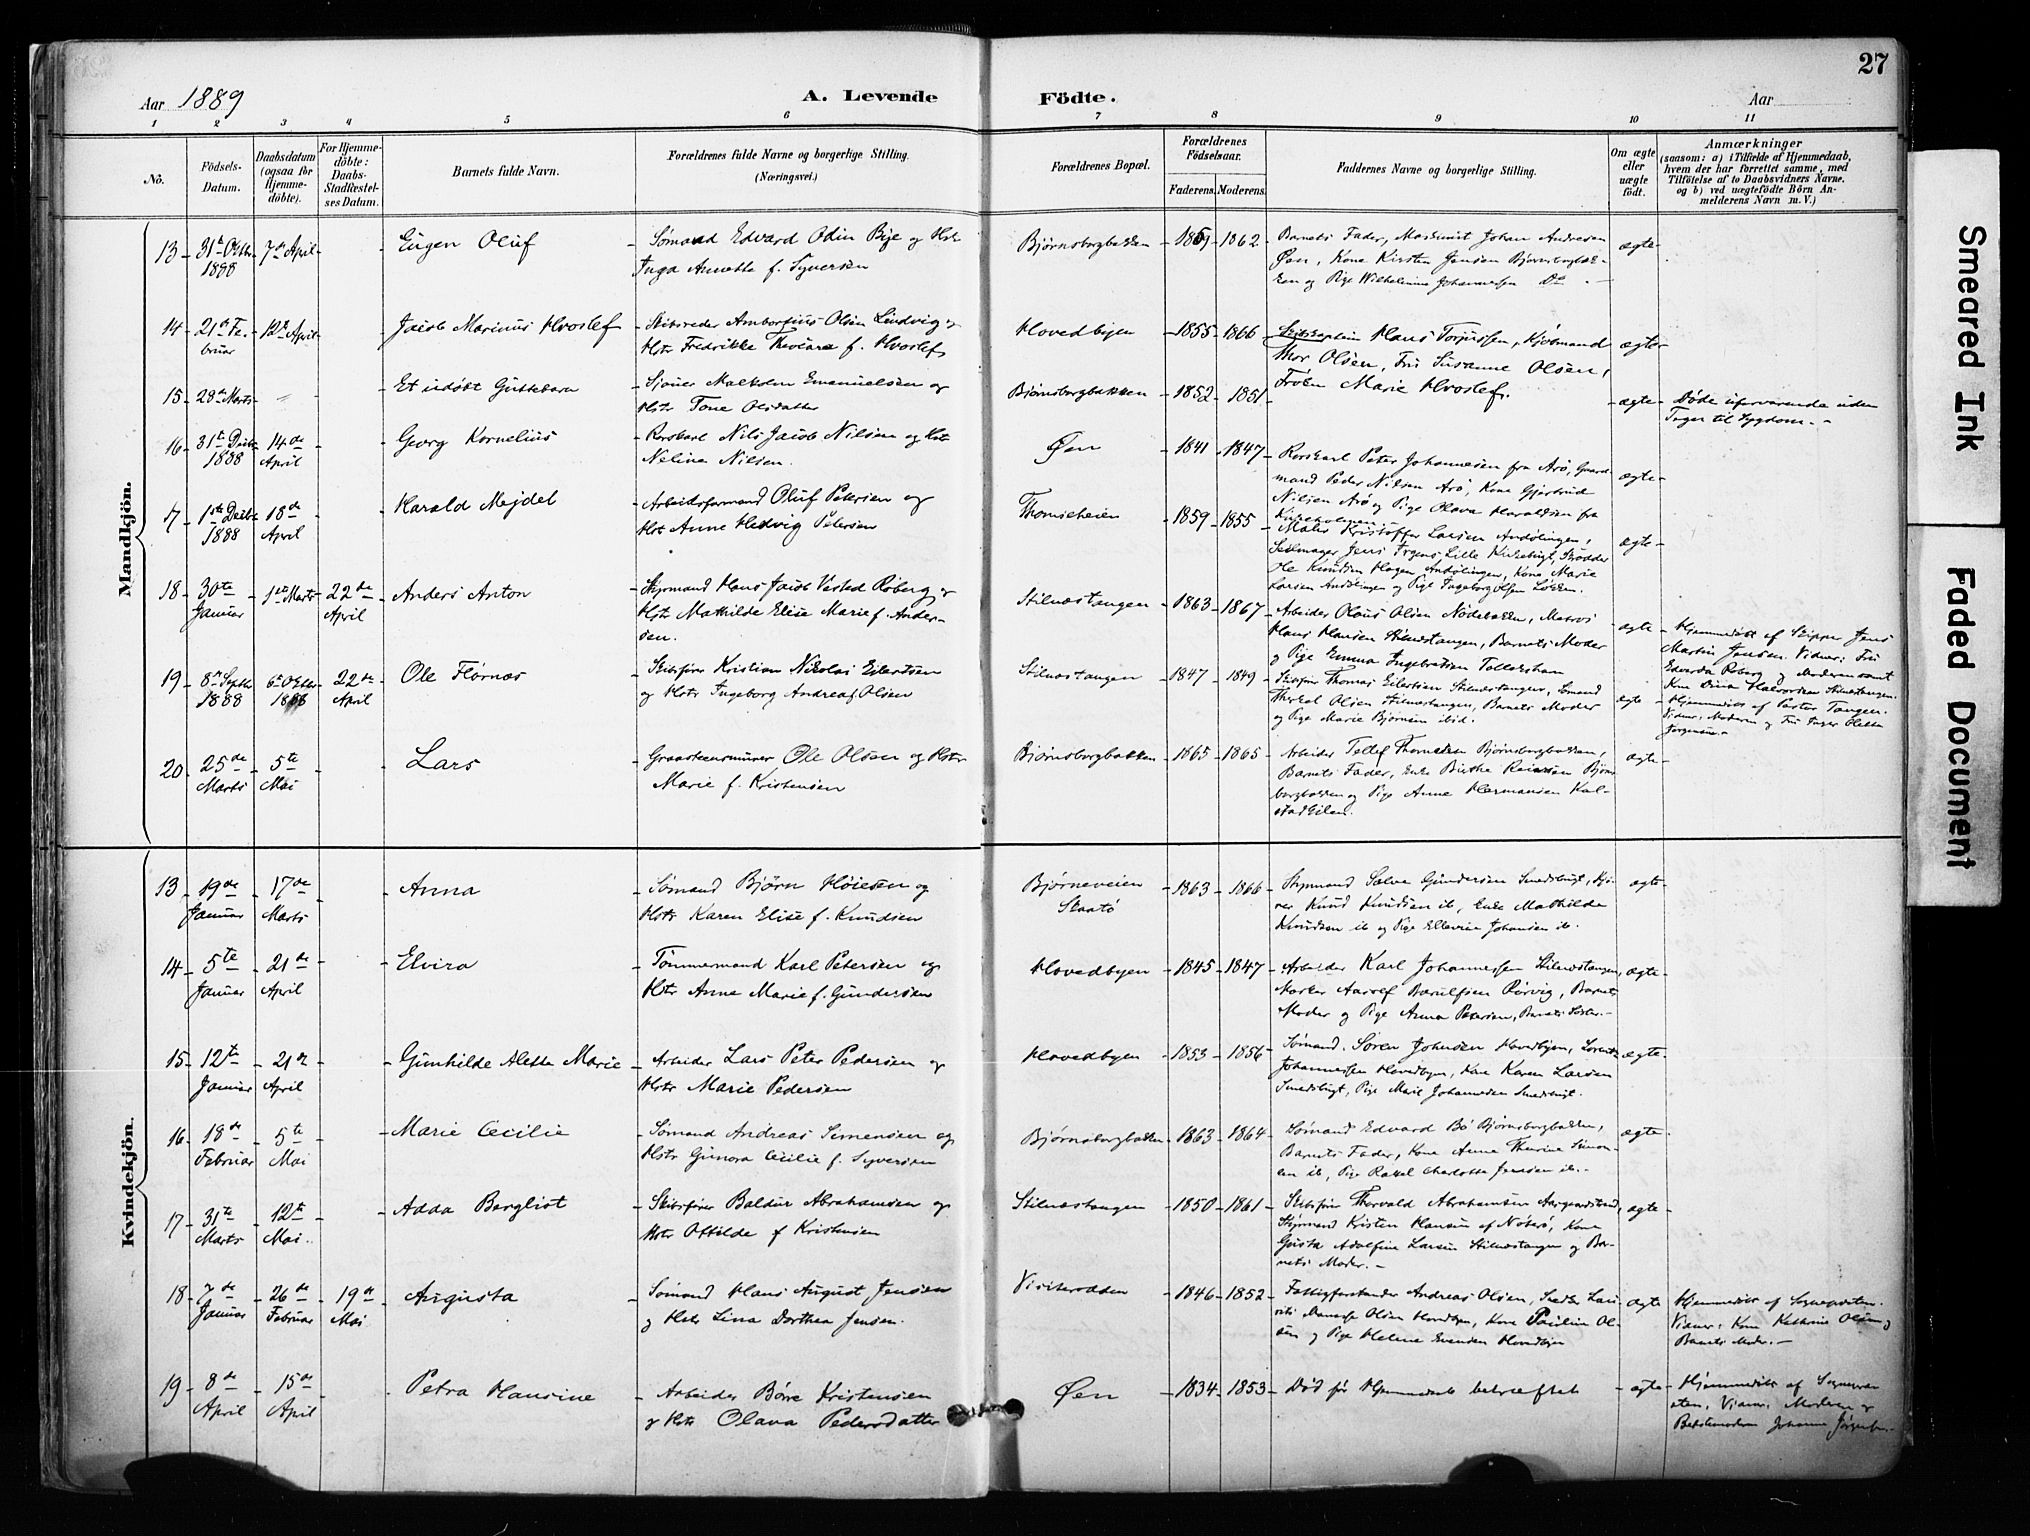 27
Aar 1889
A. Levende Födte.
Aar
1 2 3 4 5 6 7 8 9 10 11
No.
Födsels-Datum.
Daabsdatum (ogsaa for Hjemme-döbte).
For Hjemme-döbte: Daabs-Stadfæstel-ses Datum.
Barnets fulde Navn.
Forældrenes fulde Navne og borgerlige Stilling. (Næringsvei.)
Forældrenes Bopæl.
Forældrenes Födselsaar.
Faderens. Moderens.
Faddernes Navne og borgerlige Stilling.
Om ægte eller uægte født.
Anmærkninger
(saasom: a) i Tilfælde af Hjemmedaab,
hvem der har forrettet samme, med
Tilføielse af to Daabsvidners Navne.
og b) ved uægtefödte Börn An-
melderens Navn m. V.)
Mandkjön.
13 31te Octbr 1888 7de April Eugen Oluf
Sømand Edvard Odin Bye og Hst
Inga Annette f. Syversen
Bjørnsborgbakken 1862
Barnets Fader, Maskinist Johan Andresen
Øen, Kone Kirsten Jensen
og Pige Wilhelmine Johannessen Do
ægte
14 21de Februar 12te April Jacob Marinus Hvoslef
Skibsreder Ambrosius Olsen Lindvig og
Hstr Fredrikke f. Hvoslef
Hovedbyen 1855 1866
Hans Torjussen, Kjøbmand
Thor Olsen, Fru Susanne Olsen,
Frøken Marie Hvoslef.
ægte
15 28de Marts Et udøbt Guttebarn
Emanuelsen og
Hstr Tone Olsdatter
Bjørnsborgbakken 1852 1851
ægte
Døde uforvarende uden
Tegn til Sygdom.
16 31te Decbr 1888 14de April Georg Kornelius
Rorskarl Nils Jacob Nilsen og Hst
Neline Nilsen.
Øen 1841 1847
Rorskarl Peter Johannesen fra Arø, Gaard-
mand Peder Nilsen Arø, Kone Gjertrud
Nilsen Arø og Pige Olava Haraldsen fra
ægte
17 1ste Decbr 1888 18de April Harald Mejdel
Arbeidsformand Oluf Petersen og
Hstr Anne Hedvig Petersen
Thomesheien 1859 1855
Maler Kristoffer Larsen
Seilmager Jens Lille Kirkebugt, Skrædder
Ole Knudsen Hagen, Kone Marie
Larsen og Pige Ingeborg Olsen
ægte
18 30te Januar 1ste Marts 22de April Anders Anton
Styrmand Hans Jacob Vested Roberg og
Hstr Mathilde Elise Marie f. Ander-
sen.
Stilnæstangen 1863 1867
Arbeider Olaus Olsen, Matros
Hans Hansen Stilnæstangen, Barnets Moder
og Pige Emma Ingebretsen
ægte
Hjemmedøbt af Skipper Jens
Martin Jensen. Vidner: Fru
Edvarda Roberg og Moderen samt
Kone Dina Halvorsen Stilnæstangen.
19 8de Septbr 1888 6te Octbr 1888 22de April Ole Flørnæs
Skibsfører Kristian Nikolai Eilertsen
og Hstr Ingeborg Andrea f. Olsen
Stilnæstangen 1847 1849
Skibsfører Thomas Eilertsen Stilnæstangen,
Olsen Stilnæstangen, Barnets Moder
og Pige Marie Bjørnsen ibid.
ægte
Hjemmedøbt af Pastor Tangen.
Vidner: Moderen og Fru Inger Olette
Jørgensen
20 25de Marts 5te Mai Lars
Graastensmurer Ole Olsen og Hstr
Marie f. Kristensen
Bjørnsborgbakken 1865 1865
Arbeider Tellef Thomesen Bjørnsborgbakken,
Barnets Fader, Enke Birthe Bjørns-
borgbakken og Pige Anne Hermansen Kal-
stadkilen.
ægte
Kvindekjön.
13 19de Januar 17de Marts Anna
Sømand Bjørn Høiesen og
Hstr Karen Elise f. Knudsen
Bjørneveien Skaatø 1863 1866
Styrmand Salve Gundersen Smedsbugt,
Knud Knudsen ib, Enke Mathilde
Knudsen ib og Pige Ellevine Johansen ib.
ægte
14 5te Januar 21de April Elvira
Tømmermand Karl Petersen og
Hstr Anne Marie f. Gundersen
Hovedbyen 1845 1847
Arbeider Karl Johannessen Stilnæstangen,
Rørvig, Barnets
Moder og Pige Anna Petersen, Barnets Søster.
ægte
15 12te Januar 21de April Gunhilde Alette Marie
Arbeider Lars Peter Pedersen og
Hstr Marie Pedersen
Hovedbyen 1853 1856
Sømand Søren Johnsen Hovedbyen, Lorentz
Johannessen Hovedbyen, Kone Karen Larsen
Smedsbugt, Pige Marie Johannesen Smedsbugt.
ægte
16 18de Februar 5te Mai Marie Cecilie
Sømand Andreas Simensen og
Hstr Gunora Cecilie f. Syversen
Bjørnsborgbakken 1863 1864
Sømand Edvard Bö Bjørnsborgbakken,
Barnets Fader, Kone Anne Therine Simon-
sen ib, Pige Rakel Charlotte Jensen ib.
ægte
17 31te Marts 12te Mai Adda Bergliot
Skibsfører Baldur Abrahamsen og
Hstr Ottilde f Kristensen
Stilnæstangen 1850 1861
Skibsfører Thorvald Abrahamsen
Styrmand Kisten Hansen af Nøterø, Kone
Gusta Adolfine Larsen Stilnæstangen og Bar-
nets Moder.
ægte
18 7de Januar 26de Februar 19de Mai Augusta
Sømand Hans August Jensen
og Hstr Lina Dorthea Jensen.
1846 1852
Fattigforstander Andreas Olsen,
Olsen Hovedbyen, Kone Pauline Ol-
sen og Pige Helene Evensen Hovedbyen
ægte
Hjemmedøbt af Sognepresten.
Vidner: Kone Kathrine Olsen og
Barnets Moder.
19 8de April 15de April Petra Hansine
Arbeider Børre Kristensen
og Hstr Olava Pedersdatter
Øen 1834 1853
Død før Hjemmedaab bekræftet
ægte
Hjemmedøbt af Sognepræ-
sten, Vidner, Moderen og
Bedstemoderen Johanne
Smeared Ink
Faded Document